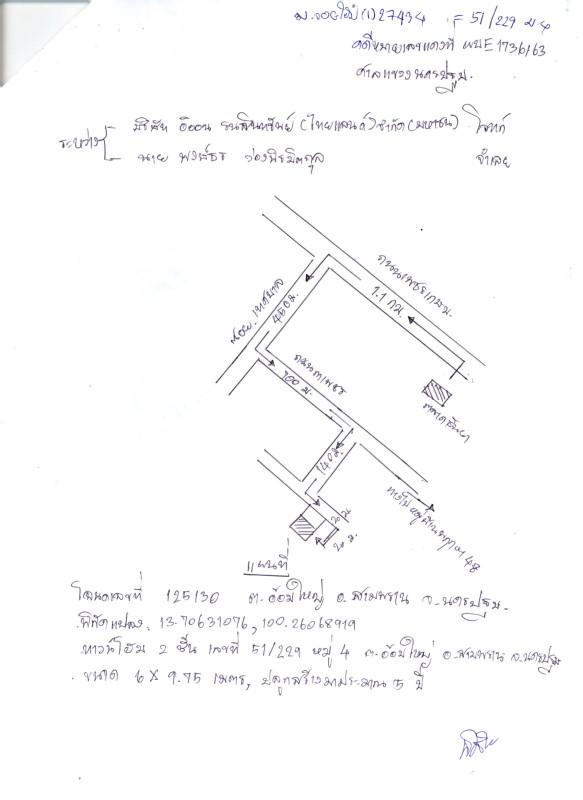 27434 = 51/229 ม.4
คดีหมายเลขแดงที่ ผบE1736/63
ศาลแขวงนครปฐม.
ระหว่าง
บริษัท อิออน ธนสินทรัพย์ (ไทยแลนด์) จำกัด (มหาชน) โจทก์
นาย พงษ์ธร จำเลย
ถนนเพชรเกษม.
1.1 กม.
ซอย. เทศบาล
450ม.
700 ม.
140ม.
20 ม.
แผนที่
โฉนดเลขที่ 125130 ต.อ้อมใหญ่ อ.สามพราน จ.นครปฐม.
พิกัดแปลง. 13.70631076, 100.26068919
ทาวน์โฮม 2 ชั้น เลขที่ 51/229 หมู่ 4 ต.อ้อมใหญ่ อ.สามพราน จ.นครปฐม
ขนาด 6 X 9.75 เมตร, ปลูกสร้างมาประมาณ 5 ปี